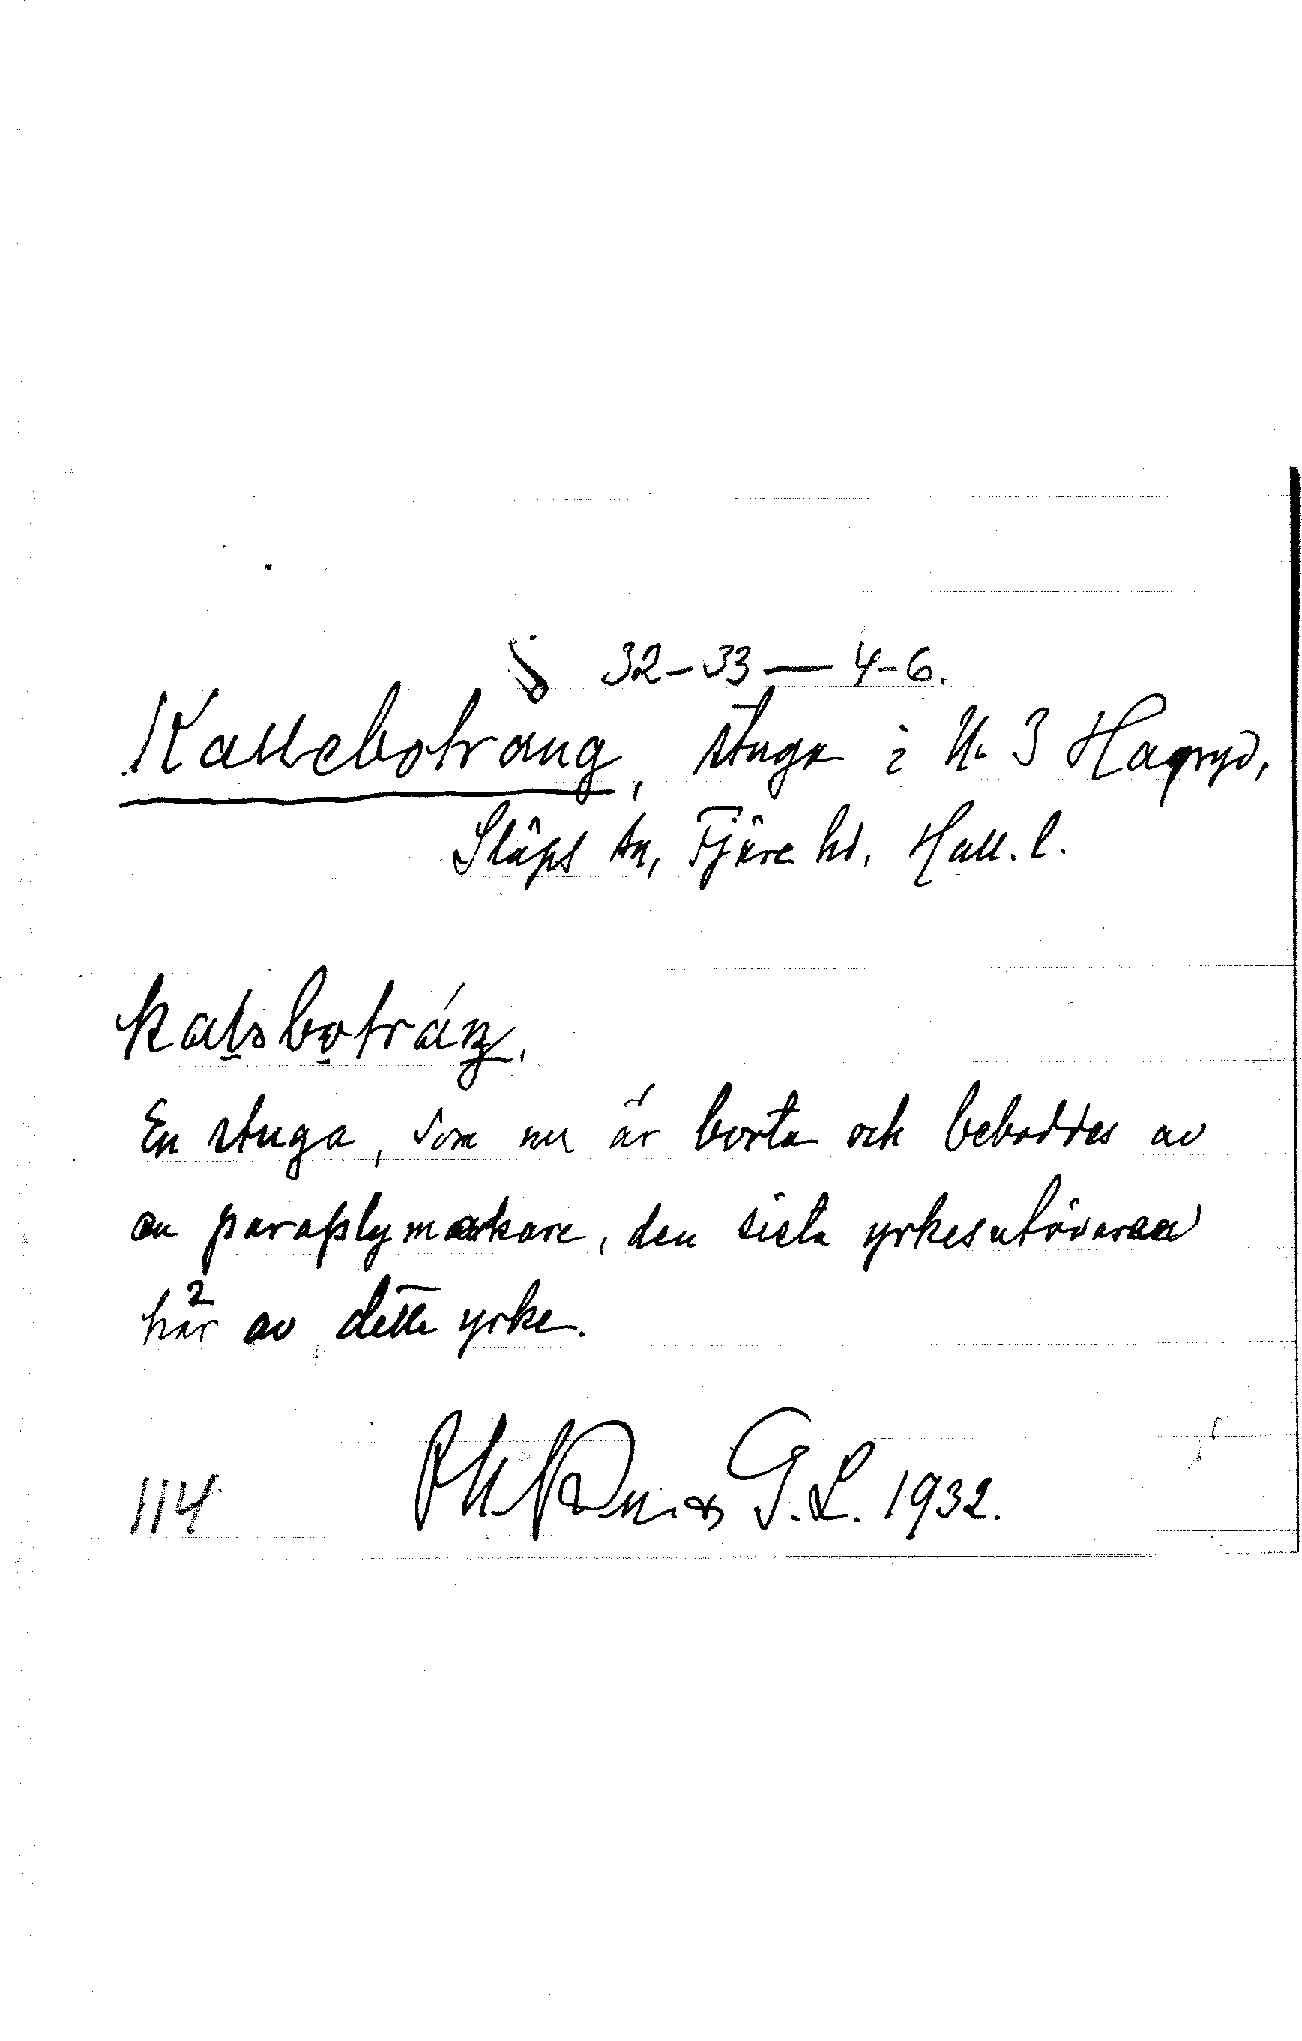 § 32-33 — 4-6.
Kallebotrång, stuga i N. 3 Hagryd,
Släps sn, Fjäre hd, Hall. l.
En stuga, som nu är borta och beboddes av
en paraplymakare, den sista yrkesutövaren
här av detta yrke.
114 G. L. 1932.